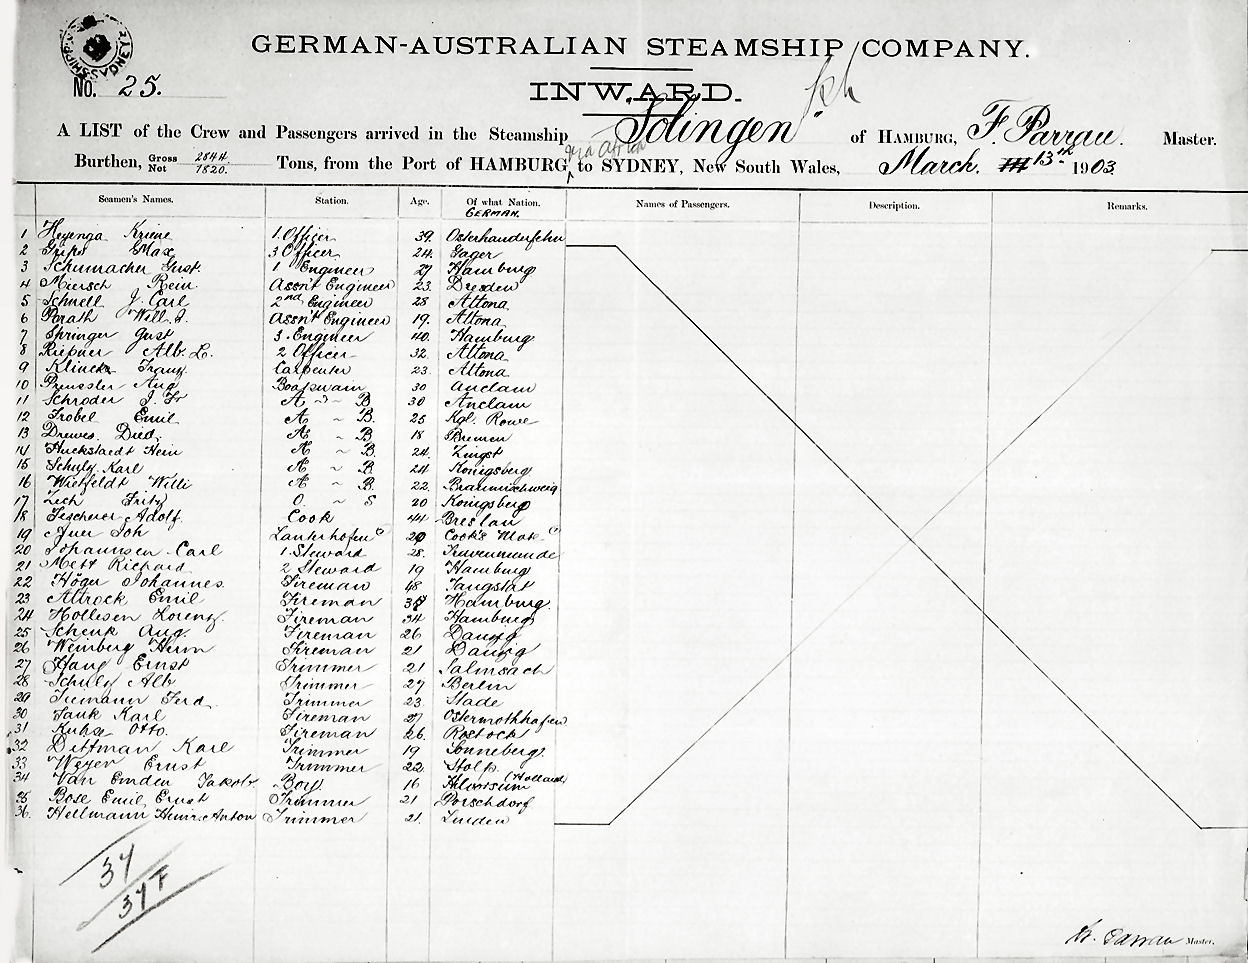 GERMAN-AUSTRALIAN STEAMSHIP COMPANY.
No. 25.
INWARD.
A LIST of the Crew and Passengers arrived in the Steamship "Solingen" of HAMBURG, F. Parrau. Master.
Burthen, Gross 2844. Net 1820. Tons, from the Port of HAMBURG, via Africa to SYDNEY, New South Wales, March. 13th 1903.
Seamen's Names. Station. Age. Of what Nation. Names of Passengers. Description. Remarks.
GERMAN.
1 Heyenga 1. Officer 39.
2 Max 3 Officer 24.
3 Schumacher Gust. 1 Engineer 27 Hamburg
4 Miersch Rein. Assn't Engineer 23. Dresden
5 Schnell J. Carl 2nd Engineer 28 Altona
6 Porath Will. Assn't Engineer 19. Altona
7 Springer Gust 3. Engineer 40. Hamburg
8 Alb. L. 2 Officer 32. Altona
9 Franz Carpenter 23. Altona
10 Preussler Aug 30 Anclam
11 Schroder J. Fr A ~ B 30 Anclam
12 Emil A ~ B. 25 Kgl. Rowe
13 Drewes. Died. A ~ B 18 Bremen
14 Huckstaedt Hein A ~ B. 24. Zingst
15 Schulz Karl A ~ B. 24 Konigsberg
16 Willi A ~ B. 22. Braunschweig
17 Zech Fritz O. ~ S 20 Konigsberg
18 Adolf. Cook 44 Breslau
19 Auer Joh Cook's Mate
20 Johannsen Carl 1. Steward 28. Travemunde
21 Mett Richard 2 Steward 19 Hamburg
22 Höger Johannes. Fireman 48
23 Altrock Emil Fireman Hamburg.
24 Hollesen Lorenz. Fireman 34 Hamburg
25 Schenk Aug. Fireman 26 Danzig
26 Weinberg Herm Fireman 21 Danzig
27 Haug Ernst Trimmer 21 Salmsach
28 Schulz Alb Trimmer 27 Berlin
29 Tiemann Ferd. Trimmer 23. Stade
30 Karl Fireman 27
31 Kuhse Otto. Fireman 26. Rostock
32 Dittman Karl Trimmer 19 Sonneberg.
33 Weyer Ernst Trimmer 22 Stolp.
34 Van Emden Jakob. Boy. 16 (Holland)
35 Bose Emil Ernst Trimmer 21 Porschdorf
36. Hellmann Heinr. Anton Trimmer 21. Linden
37
37 F
Parrau Master.